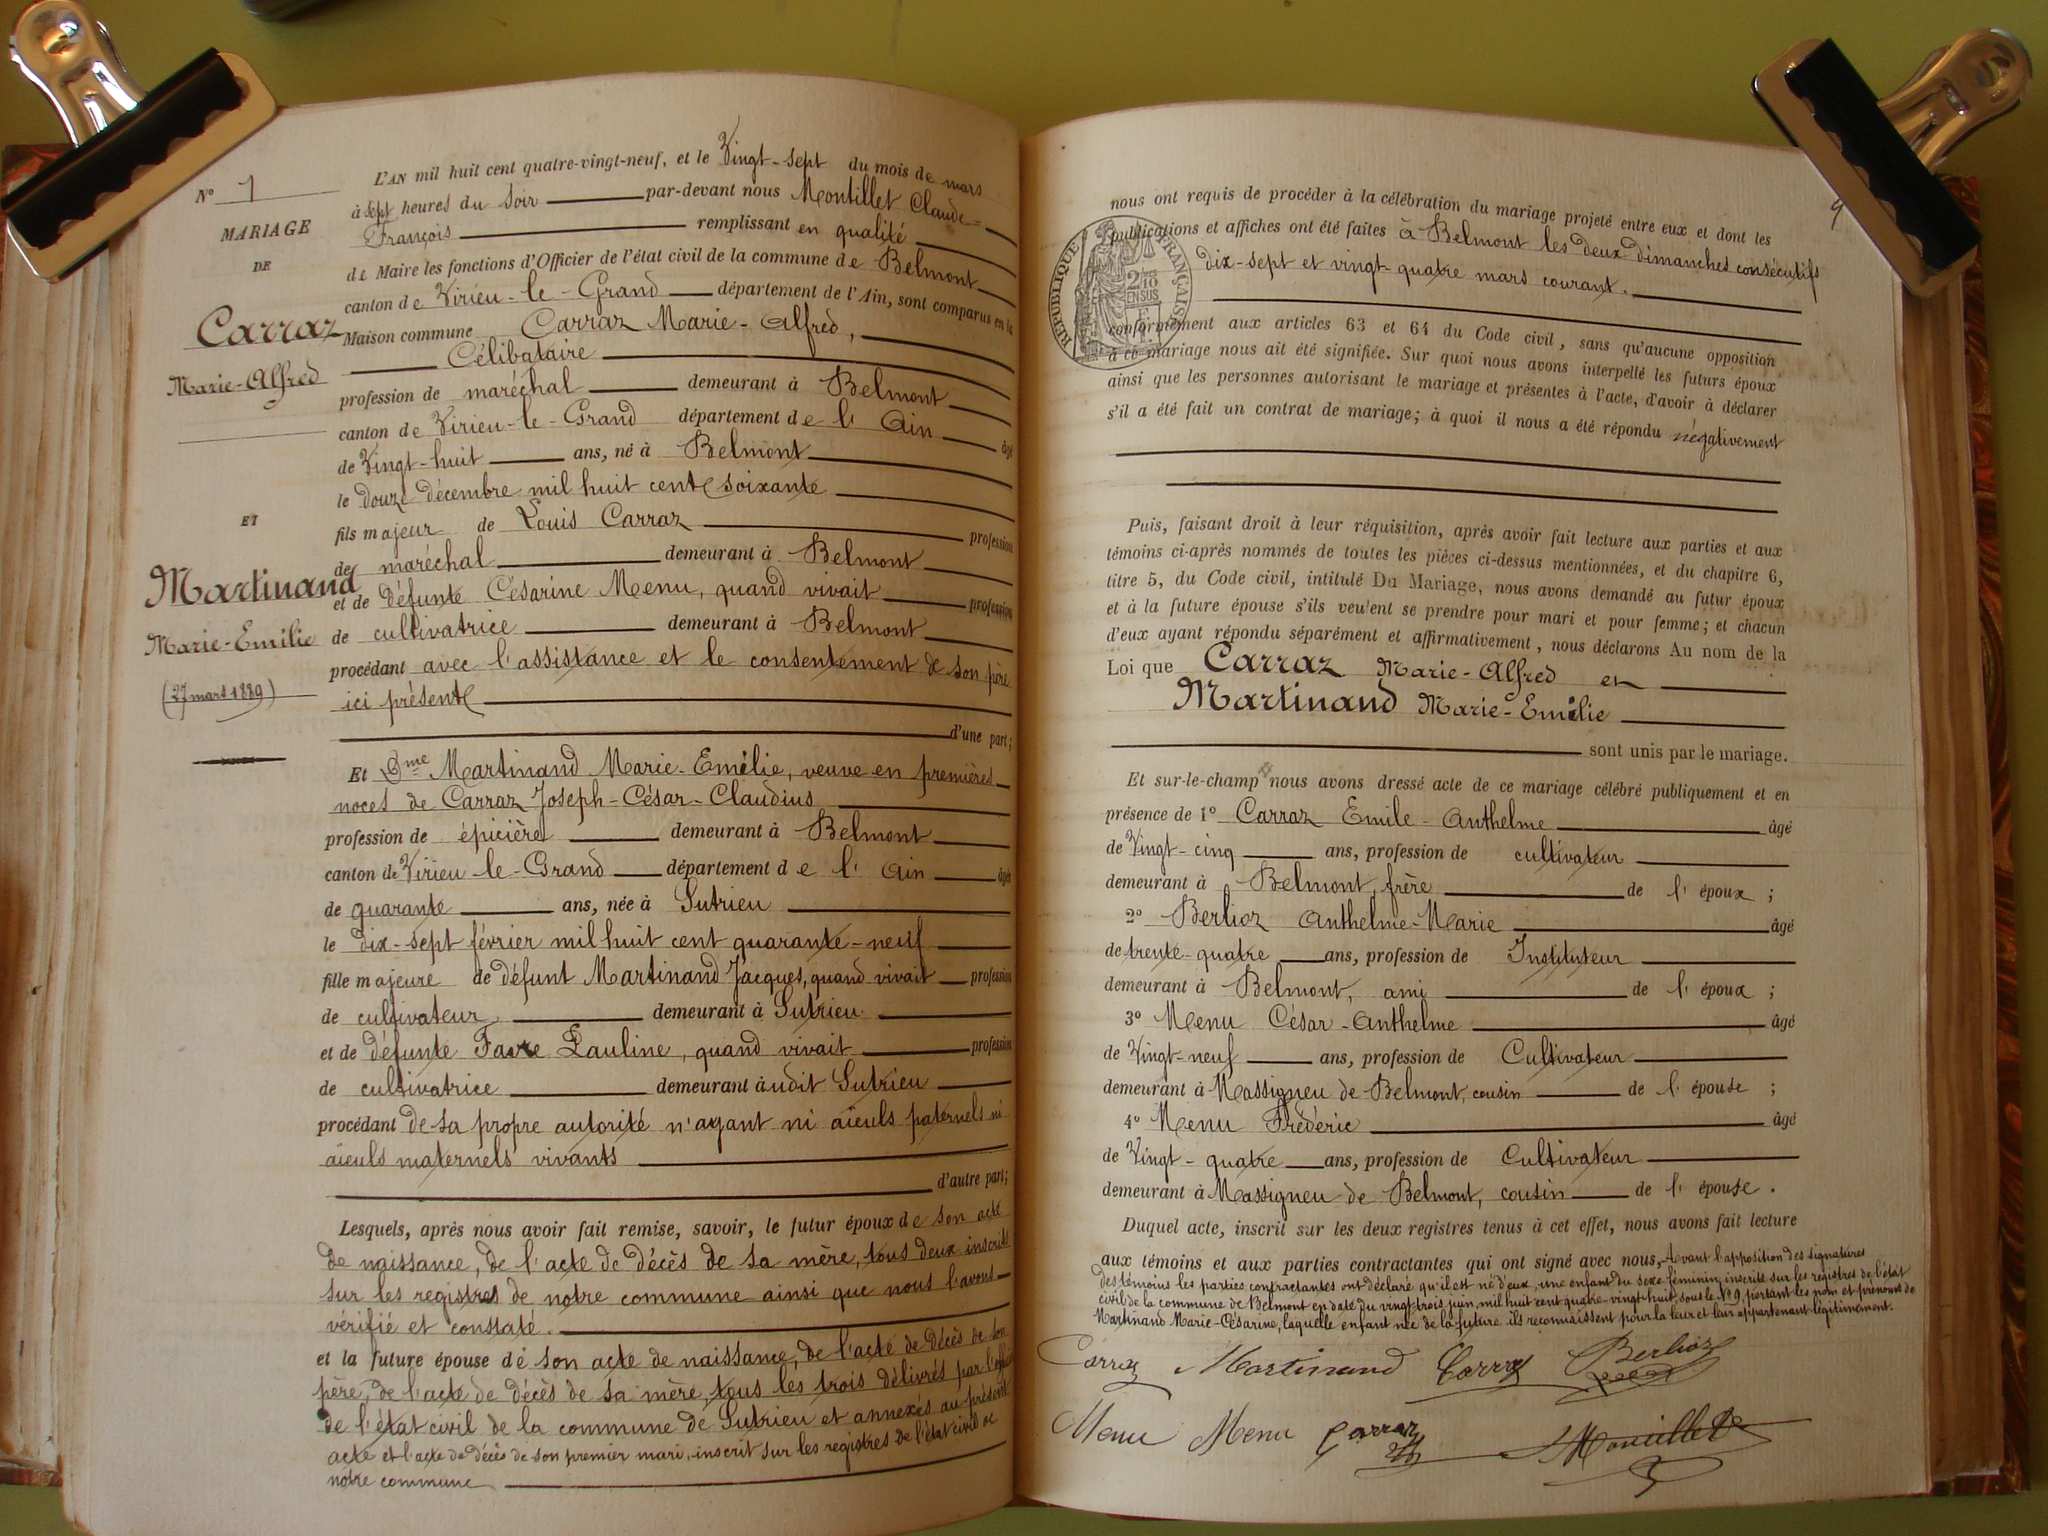 N° 1
MARIAGE
DE
Carraz
Marie-Alfred
ET
Martinand
Marie-Emélie
(27 mars 1889)
L'AN mil huit cent quatre-vingt-neuf, et le Vingt-sept du mois de mars
à sept heures du soir par-devant nous Montillet Claude-
François remplissant en qualité
de Maire les fonctions d'Officier de l'état civil de la commune de Belmont
canton de Virieu-le-Grand département de l'Ain, sont comparus en la
Maison commune Carraz Marie-Alfred,
Célibataire
profession de maréchal demeurant à Belmont
canton de Virieu-le-Grand département de l'Ain âgé
de Vingt-huit ans, né à Belmont
le douze décembre mil huit cent soixante
fils majeur de Louis Carraz profession
de maréchal demeurant à Belmont
et de défunte Césarine Menu, quand vivait profession
de cultivatrice demeurant à Belmont
procédant avec l'assistance et le consentement de son père
ici présent
d'une part;
Et Dme Martinand Marie-Emélie, veuve en premières
noces de Carraz Joseph-César-Claudius
profession de épicière demeurant à Belmont
canton de Virieu-le-Grand département de l'Ain âgée
de quarante ans, née à Sutrieu
le dix-sept février mil huit cent quarante-neuf
fille majeure de défunt Martinand Jacques, quand vivait profession
de cultivateur demeurant à Sutrieu
et de défunte Favre Pauline, quand vivait profession
de cultivatrice demeurant àudit Sutrieu
procédant de sa propre autorité n'ayant ni aïeuls paternels ni
aïeuls maternels vivants
d'autre part;
Lesquels, après nous avoir fait remise, savoir, le futur époux de son acte
de naissance, de l'acte de décès de sa mère, tous deux inscrits
sur les registres de notre commune ainsi que nous l'avons
vérifié et constaté.
et la future épouse de son acte de naissance, de l'acte de décès de son
père, de l'acte de décès de sa mère, tous les trois délivrés par l'officier
de l'état civil de la commune de Sutrieu et annexés au présent
acte et l'acte de décès de son premier mari, inscrit sur les registres de l'état civil de
notre commune
9
nous ont requis de procéder à la célébration du mariage projeté entre eux et dont les
publications et affiches ont été faites à Belmont les deux dimanches consécutifs
dix-sept et vingt-quatre mars courant.
RÉPUBLIQUE FRANÇAISE
2/10
EN SUS
conformément aux articles 63 et 64 du Code civil, sans qu'aucune opposition
à ce mariage nous ait été signifiée. Sur quoi nous avons interpellé les futurs époux
ainsi que les personnes autorisant le mariage et présentes à l'acte, d'avoir à déclarer
s'il a été fait un contrat de mariage; à quoi il nous a été répondu négativement
Puis, faisant droit à leur réquisition, après avoir fait lecture aux parties et aux
témoins ci-après nommés de toutes les pièces ci-dessus mentionnées, et du chapitre 6,
titre 5, du Code civil, intitulé Du Mariage, nous avons demandé au futur époux
et à la future épouse s'ils veulent se prendre pour mari et pour femme; et chacun
d'eux ayant répondu séparément et affirmativement, nous déclarons Au nom de la
Loi que Carraz Marie-Alfred et
Martinand Marie-Emélie
sont unis par le mariage.
Et sur-le-champ nous avons dressé acte de ce mariage célébré publiquement et en
présence de 1° Carraz Emile-Anthelme âgé
de Vingt-cinq ans, profession de cultivateur
demeurant à Belmont, frère de l'époux;
2° Berlioz Anthelme-Marie âgé
de trente-quatre ans, profession de Instituteur
demeurant à Belmont, ami de l'époux;
3° Menu César-Anthelme âgé
de Vingt-neuf ans, profession de Cultivateur
demeurant à Massigneu de Belmont, cousin de l'épouse;
4° Menu Frédéric âgé
de Vingt-quatre ans, profession de Cultivateur
demeurant à Massigneu de Belmont, cousin de l'épouse.
Duquel acte, inscrit sur les deux registres tenus à cet effet, nous avons fait lecture
aux témoins et aux parties contractantes qui ont signé avec nous, Avant l'apposition des signatures
des témoins les parties contractantes ont déclaré qu'il est né d'eux, une enfant du sexe féminin, inscrite sur les registres de l'état
civil de la commune de Belmont en date du vingt-trois juin mil huit cent quatre-vingt-huit, sous le N° 9, portant les nom et prénoms de
Martinand Marie-Césarine, laquelle enfant née de la future ils reconnaissent pour la leur et leur appartenant légitimement.
Carraz Martinand Carraz Berlioz
Menu Menu Carraz Montillet